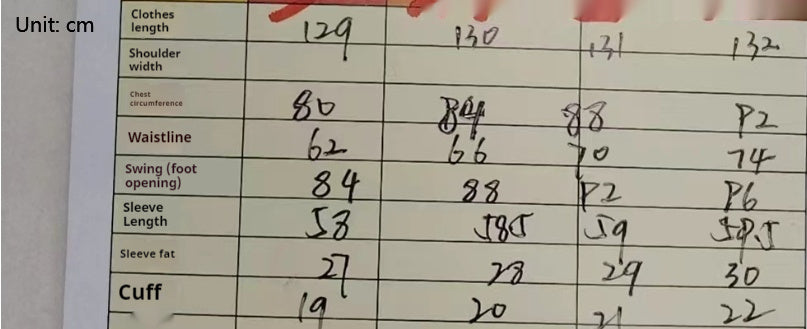 Unit: cm
Clothes length 129 130 131 132
Shoulder width
Chest circumference 80 84 88 92
Waistline 62 66 70 74
Swing (foot opening) 84 88 92 96
Sleeve Length 58 58.5 59 59.5
Sleeve fat 27 28 29 30
Cuff 19 20 21 22